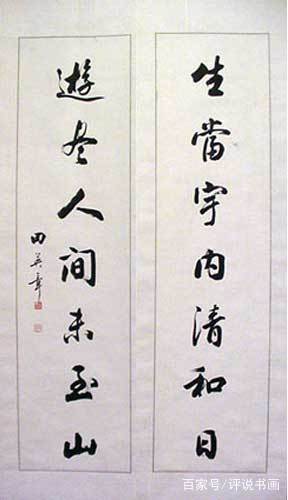 生當宇内清和日
遊尽人間未至山
田英章
百家号/评说书画